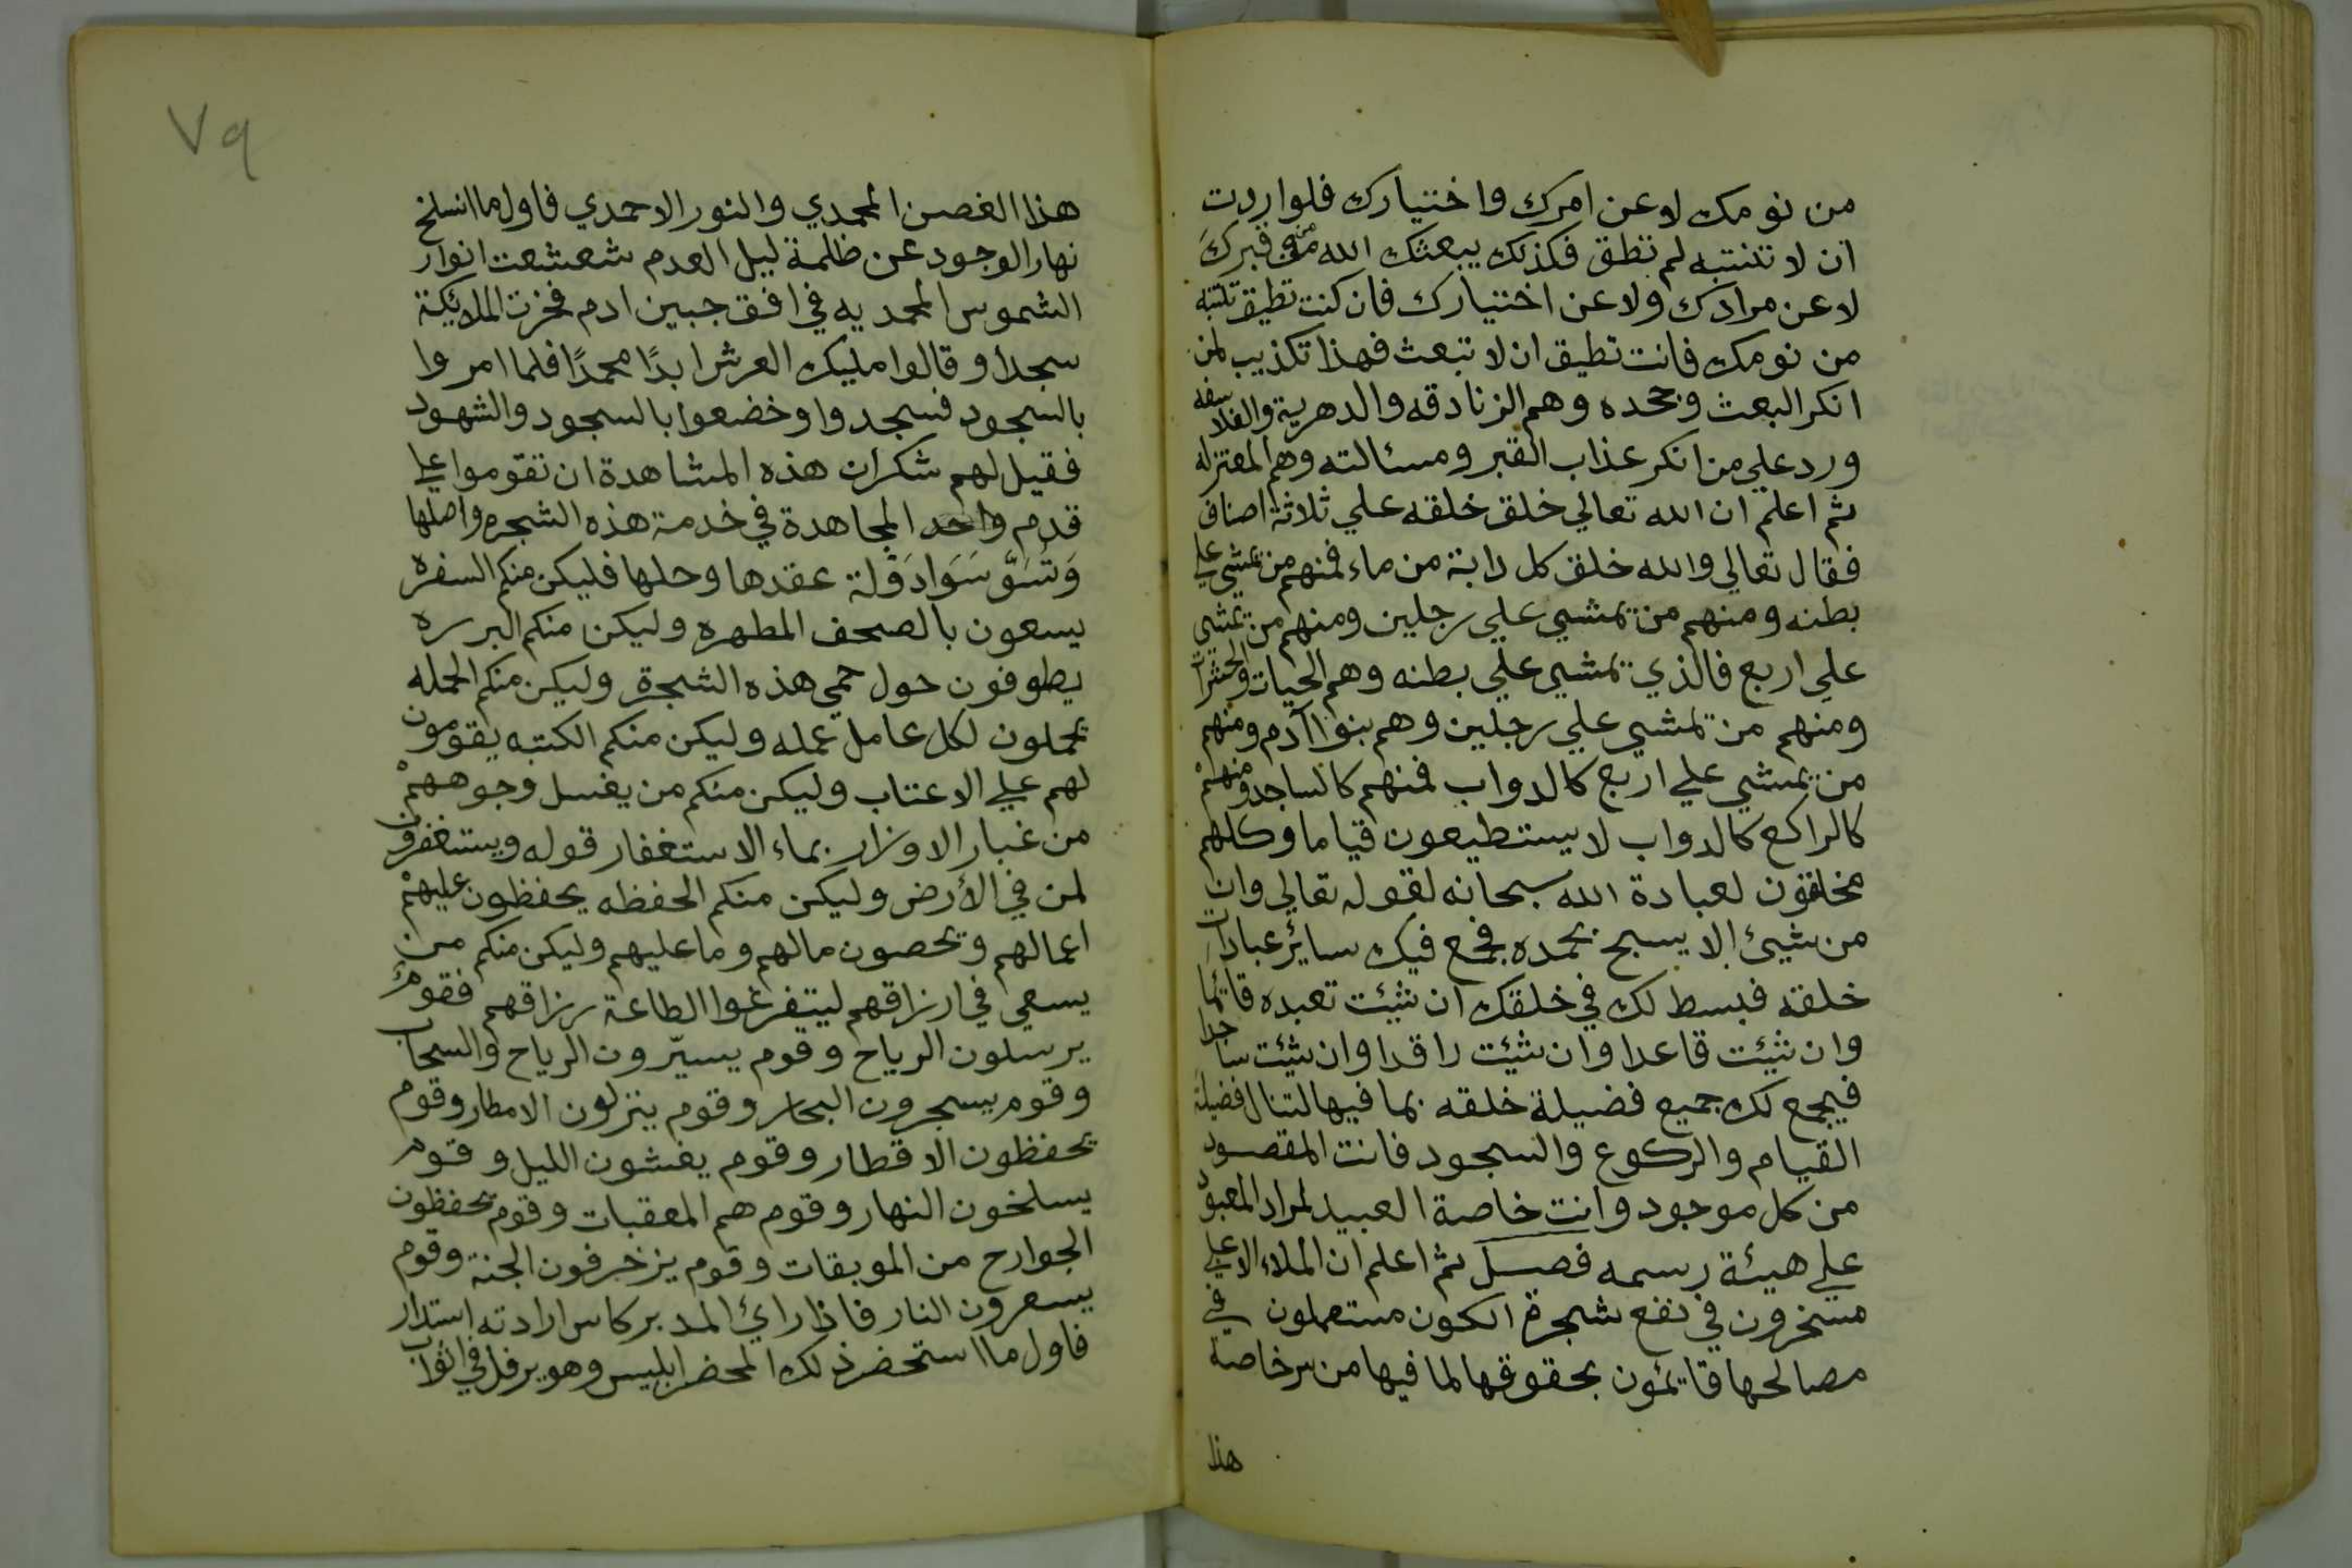 من نومك لا عن امرك واختيارك فلو اردت
ان لا تنتبه لم تطق فكذلك يبعثك الله من قبرك
لا عن مرادك ولا عن اختيارك فان كنت تطيق تنتبه
من نومك فانت تطيق ان لا تبعث فهذا تكذيب لمن
انكر البعث وجحده وهم الزنادقه والدهرية والفلاسفه
ورد علي من انكر عذاب القبر ومسائلته وهم المعتزله
ثم اعلم ان الله تعالي خلق خلقه علي ثلاثة اصناف
فقال تعالي والله خلق كل دابة من ماء فمنهم من يمشي علي
بطنه ومنهم من يمشي علي رجلين ومنهم من يمشي
علي اربع فالذي يمشي علي بطنه وهم الحيات والحشرات
ومنهم من يمشي علي رجلين وهم بنوا آدم ومنهم
من يمشي علي اربع كالدواب فمنهم كالساجد ومنهم
كالراكع كالدواب لا يستطيعون قياما وكلهم
مخلقون لعبادة الله سبحانه لقوله تعالي وان
من شيئ الا يسبح بحمده فجمع فيك سائر عبادات
خلقه فبسط لك في خلقك ان شئت تعبده قائما
وان شئت قاعدا وان شئت راقدا وان شئت ساجدا
فيجمع لك جميع فضيلة خلقه بما فيها لتنال فضيلة
القيام والركوع والسجود فانت المقصود
من كل موجود وانت خاصة العبيد لمراد المعبود
علي هيئة رسمه فصل ثم اعلم ان الملاء الاعلي
مسخرون في نفع شجرة الكون مستعملون في
مصالحها قائمون بحقوقها لما فيها من سر خاصة
هذا
٧٩
هذا الغصن المحمدي والنور الاحمدي فاول ما انسلخ
نهار الوجود عن ظلمة ليل العدم شعشعت انوار
الشموس المحمديه في افق جبين ادم فخرت الملائكة
سجدا وقالوا مليك العرش ابدًا محمدًا فلما امروا
بالسجود فسجدوا وخضعوا بالسجود والشهود
فقيل لهم شكران هذه المشاهدة ان تقوموا علي
قدم واحد المجاهدة في خدمة هذه الشجره واصلها
عقدها وحلها فليكن منكم السفره
يسعون بالصحف المطهره وليكن منكم البرره
يطوفون حول حمي هذه الشجرة وليكن منكم الحمله
يحملون لكل عامل عمله وليكن منكم الكتبه يقومون
لهم علي الاعتاب وليكن منكم من يغسل وجوههم
من غبار الاوزار بماء الاستغفار قوله ويستغفرون
لمن في الأرض وليكن منكم الحفظه يحفظون عليهم
اعمالهم ويحصون مالهم وما عليهم وليكن منكم من
يسعي في ارزاقهم ليتفرغوا الطاعة رزاقهم فقوم
يرسلون الرياح وقوم يسيّرون الرياح والسحاب
وقوم يسجرون البحار وقوم ينزلون الامطار وقوم
يحفظون الاقطار وقوم يغشون الليل وقوم
يسلخون النهار وقوم هم المعقبات وقوم يحفظون
الجوارح من الموبقات وقوم يزخرفون الجنة وقوم
يسعرون النار فاذا رائ المدبر كاس ارادته استدار
فاول ما استحضر ذلك المحضر ابليس وهو يرفل في اثواب